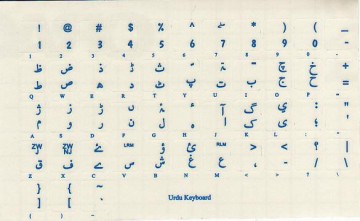 ! @ # $ % ^ * ) ( _
1 2 3 4 5 6 7 8 9 0 -
1 2 3 4 5 6 7 8 9 0 -
ظ ض ذ ڈ ث چ خ +
ط ص ھ د ٹ پ ت ب ج ح =
Q W E R T Y U I O P =
ژ ز ڑ ں ۂ ء آ گ ي : "
م و ر ن ل ہ ا ک ی ؛ '
A S D F G H J K L ; '
ZWJ ZWNJ ۓ LRM ؤ ئ RLM > < ؟ |
ق ف ے س ش غ ع ، ۔ / \
Z X C V B N M < > ? \
} { ~
] [
Urdu Keyboard